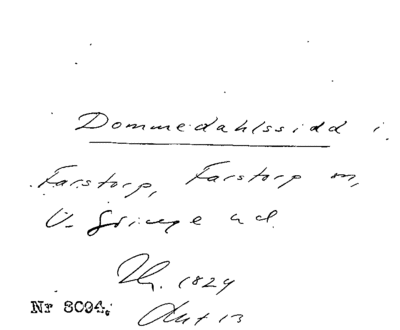 Dommedahlssidd i
Farstorp, Farstorp m,
V. Göinge hd.
1824
Nr 8094.
Aut 13